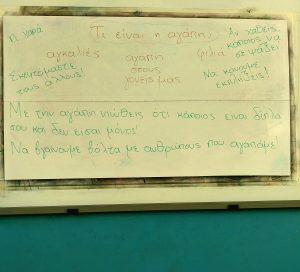 η χαρά
Τι είναι η αγάπη;
Αν χαθείς
κάποιος να
σε ψάξει!
αγκαλιές
αγάπη
στους
γονείς μας
φιλιά
Σκεφτόμαστε
τους άλλους!
Να κάνουμε
εκπλήξεις!
Με την αγάπη νιώθεις ότι κάποιος είναι δίπλα
σου και δεν είσαι μόνος!
Να βγαίνουμε βόλτα με ανθρώπους που αγαπάμε!